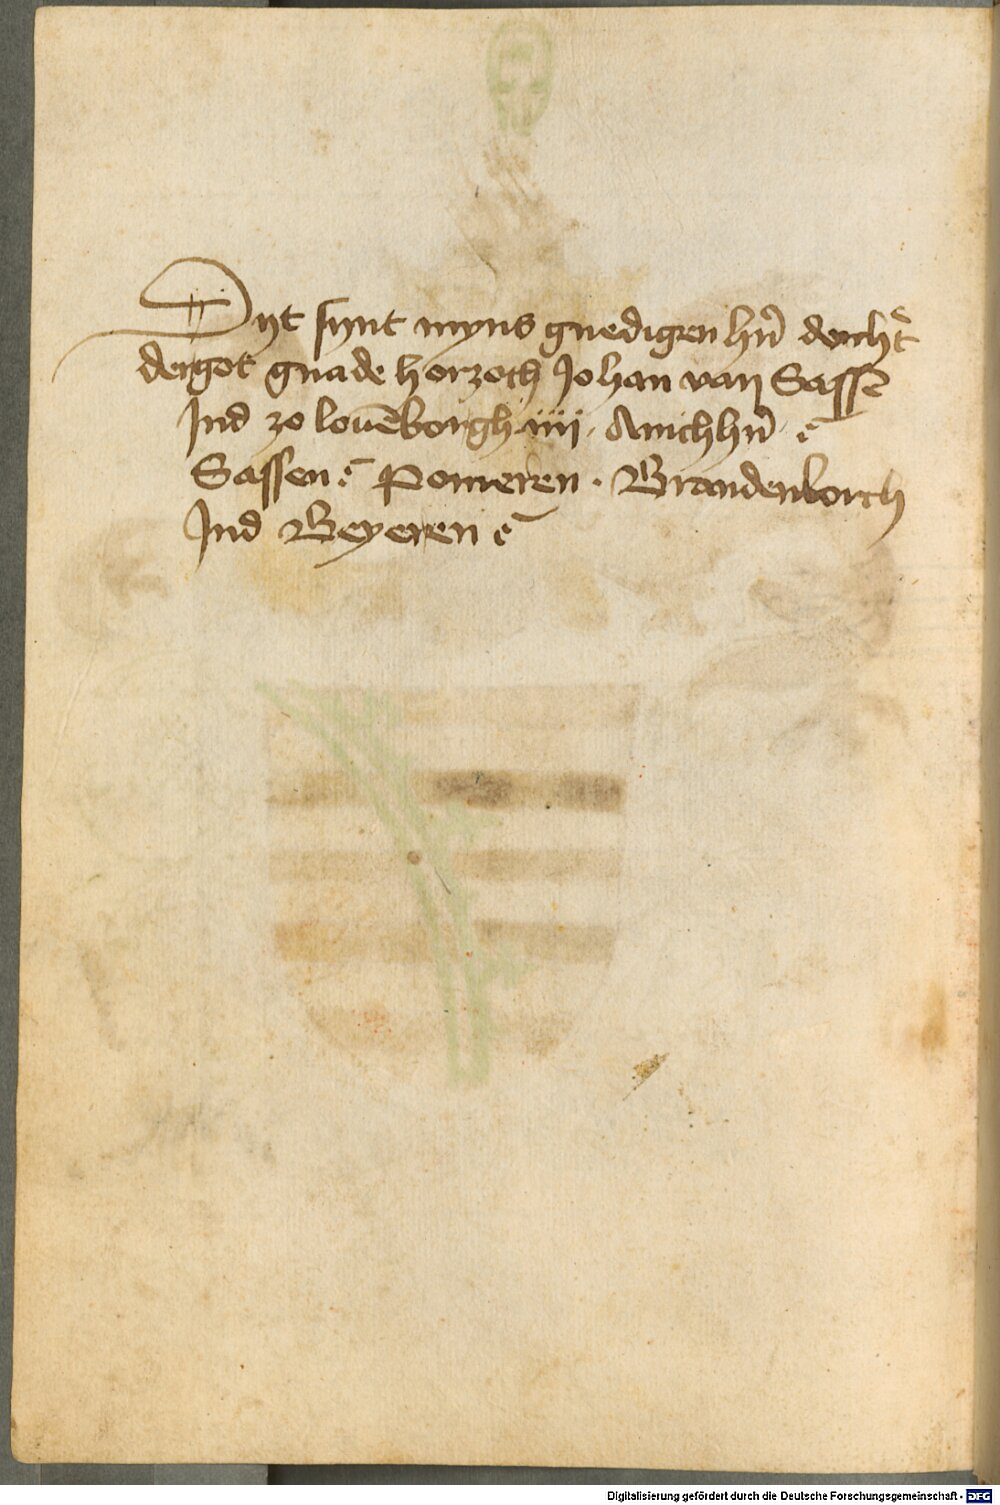 Dyt synt myns gnedigen hn̄ dorcht̄
der got gnade herzoch Johan van Sassē
Ind zo louēborgh iiii Anichhn̄ ē
Sassen ē Pomeren · Brandenborch
Ind Beyeren ē
Digitalisierung gefördert durch die Deutsche Forschungsgemeinschaft - DFG